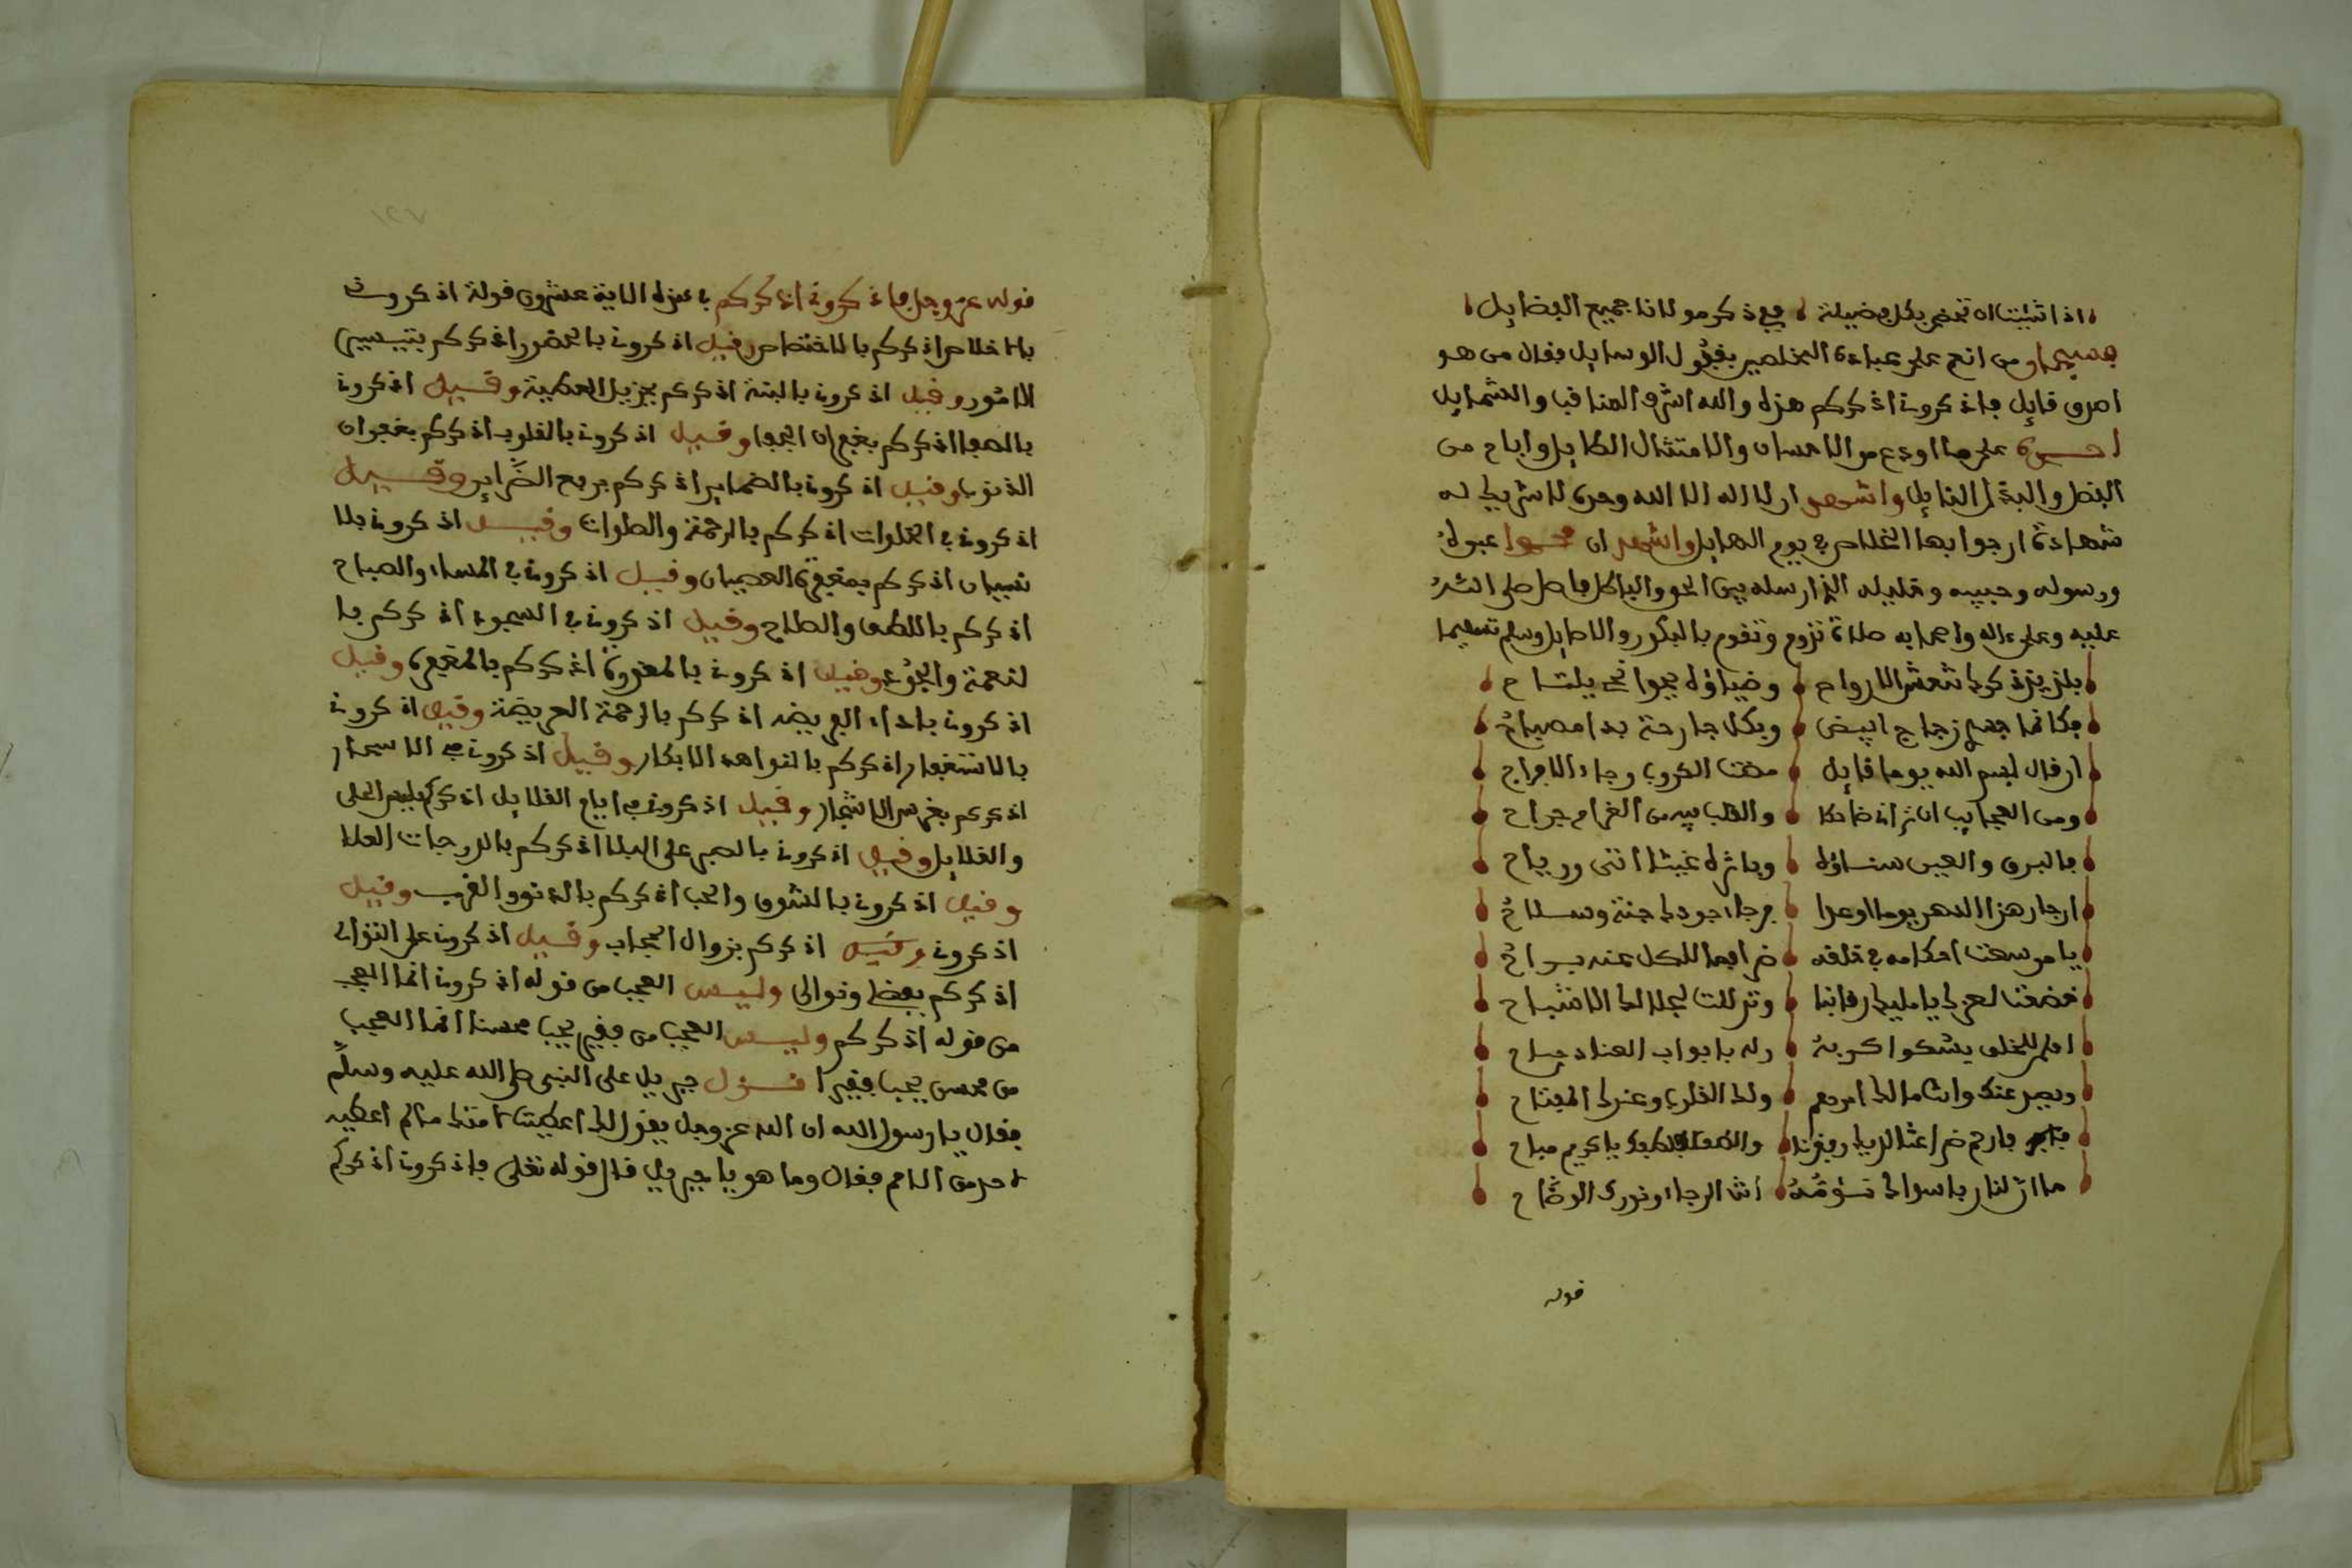 اذا شئت ان تحضى بكل فضيلة فبي ذكر مولانا جميع الفضايل
فسبحان من انعم على عباده المخلصين بقبول الوسايل فقال من هو
اصدق قايل فاذكروني اذكركم هذه والله اشرف المناقب والشمايل
احمده على ما اودع من الاحسان والامتنان الكامل واباح من
الفضل والبذل النايل واشهد ان لا اله الا الله وحده لا شريك له
شهادة ارجوا بها الخلاص في يوم الهايل واشهد ان محمدا عبده
ورسوله وحبيبه وخليله الذي ارسله بين الحق والباطل فاصل صلى الله
عليه وعلى ءاله واصحابه صلاة تدوم وتقوم بالبكور والاصايل وسلم تسليما
بلذيذ ذكرك تنعش الارواح وضياؤه يجوانحي يلتاح
فكانما جسمي زجاج ابيض وبكل جارحة بدا مصباح
ان قال بسم الله يوما قايل مضت الكروب وجاء الافراح
ومن العجايب ان تراني ضاحكا والقلب فيه من الغرام جراح
فالبرق والعيس سناؤه وباثره غيث اتى ورياح
ان جار هذا الدهر يوما او عدا فرجاء جودك جنة وسلاح
يا من وسعت احكامه في خلقه ضرابها للكل عنه براح
خضعت لعزك يا مليك رقابنا وتذللت لجلالك الاشباح
افلم للخلق يشكوا كربة وله بابواب العناد جماح
ويصد عنك وانت مالك امرهم ولك القلوب وعندك المفتاح
فارحم ضراعتنا اليك يا كريم مباح
ما ان لنا رب سواك نؤمه انت الرجاء ونورك الوضاح
قوله
١٢٧
قوله عز وجل فاذكروني اذكركم في هذه الاية عشرون قولة اذكروني
بالاخلاص اذكركم بالاختصاص وقيل اذكروني بالحضور اذكركم بتيسير
الامور وقيل اذكروني بالبتة اذكركم بجزيل العطية وقيل اذكروني
بالصفا اذكركم بغفران الجفا وقيل اذكروني بالقلوب اذكركم بغفران
الذنوب وقيل اذكروني بالضماير اذكركم برفع الضراير وقيل
اذكروني في الخلوات اذكركم بالرحمة والصلوات وقيل اذكروني بلا
نسيان اذكركم بمغفرة العصيان وقيل اذكروني في المساء والصباح
اذكركم باللطف والصلاح وقيل اذكروني في السجود اذكركم با
لنعمة والجود وقيل اذكروني بالمعذرة اذكركم بالمغفرة وقيل
اذكروني باداء الفريضة اذكركم بالرحمة العريضة وقيل اذكروني
بالاستغفار اذكركم بالنواهد الابكار وقيل اذكروني في الاسحار
اذكركم بغرس الاشجار وقيل اذكروني في ايام القلايل اذكركم بلبس الحلي
والقلايل وقيل اذكروني بالصبر على البلا اذكركم بالدرجات العلا
وقيل اذكروني بالشوق والحب اذكركم بالدنو والقرب وقيل
اذكروني وقيل اذكركم بزوال الحجاب وقيل اذكروني على التوالي
اذكركم بفضلي ونوالي وليس العجب من قوله اذكروني انما العجب
من قوله اذكركم وليس العجب من فقير يحب محسنا انما العجب
من محسن يحب فقيرا فنزل جبريل على النبي صلى الله عليه وسلم
فقال يا رسول الله ان الله عز وجل يقول لك اعطيت امتك ما لم اعطيه
لاحد من الامم فقال وما هو يا جبريل قال قوله تعلى فاذكروني اذكركم